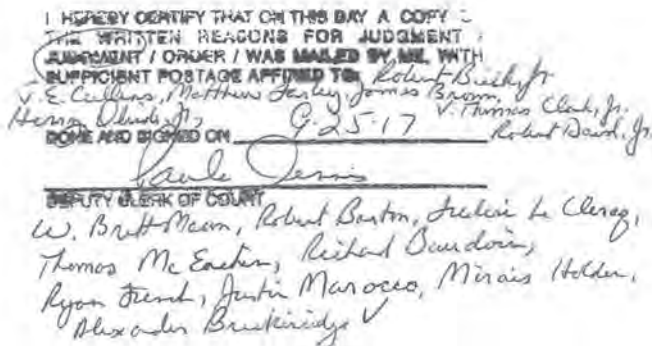 I HEREBY CERTIFY THAT ON THIS DAY A COPY
THE WRITTEN REASONS FOR JUDGMENT /
JUDGMENT / ORDER / WAS MAILED BY ME, WITH
SUFFICIENT POSTAGE AFFIXED TO: Robert
V. E. Cullens, Matthew Farley, James Brown,
Henry Jr, V. Thomas Clark, Jr.
DONE AND SIGNED ON 9-25-17 Robert David, Jr.
DEPUTY CLERK OF COURT
W. Brett Mason, Robert Barton, Le Clercq,
Thomas McEachin, Richard Baudouin,
Ryan French, Justin Marocco, Holder,
Alexander Breckinridge ✓